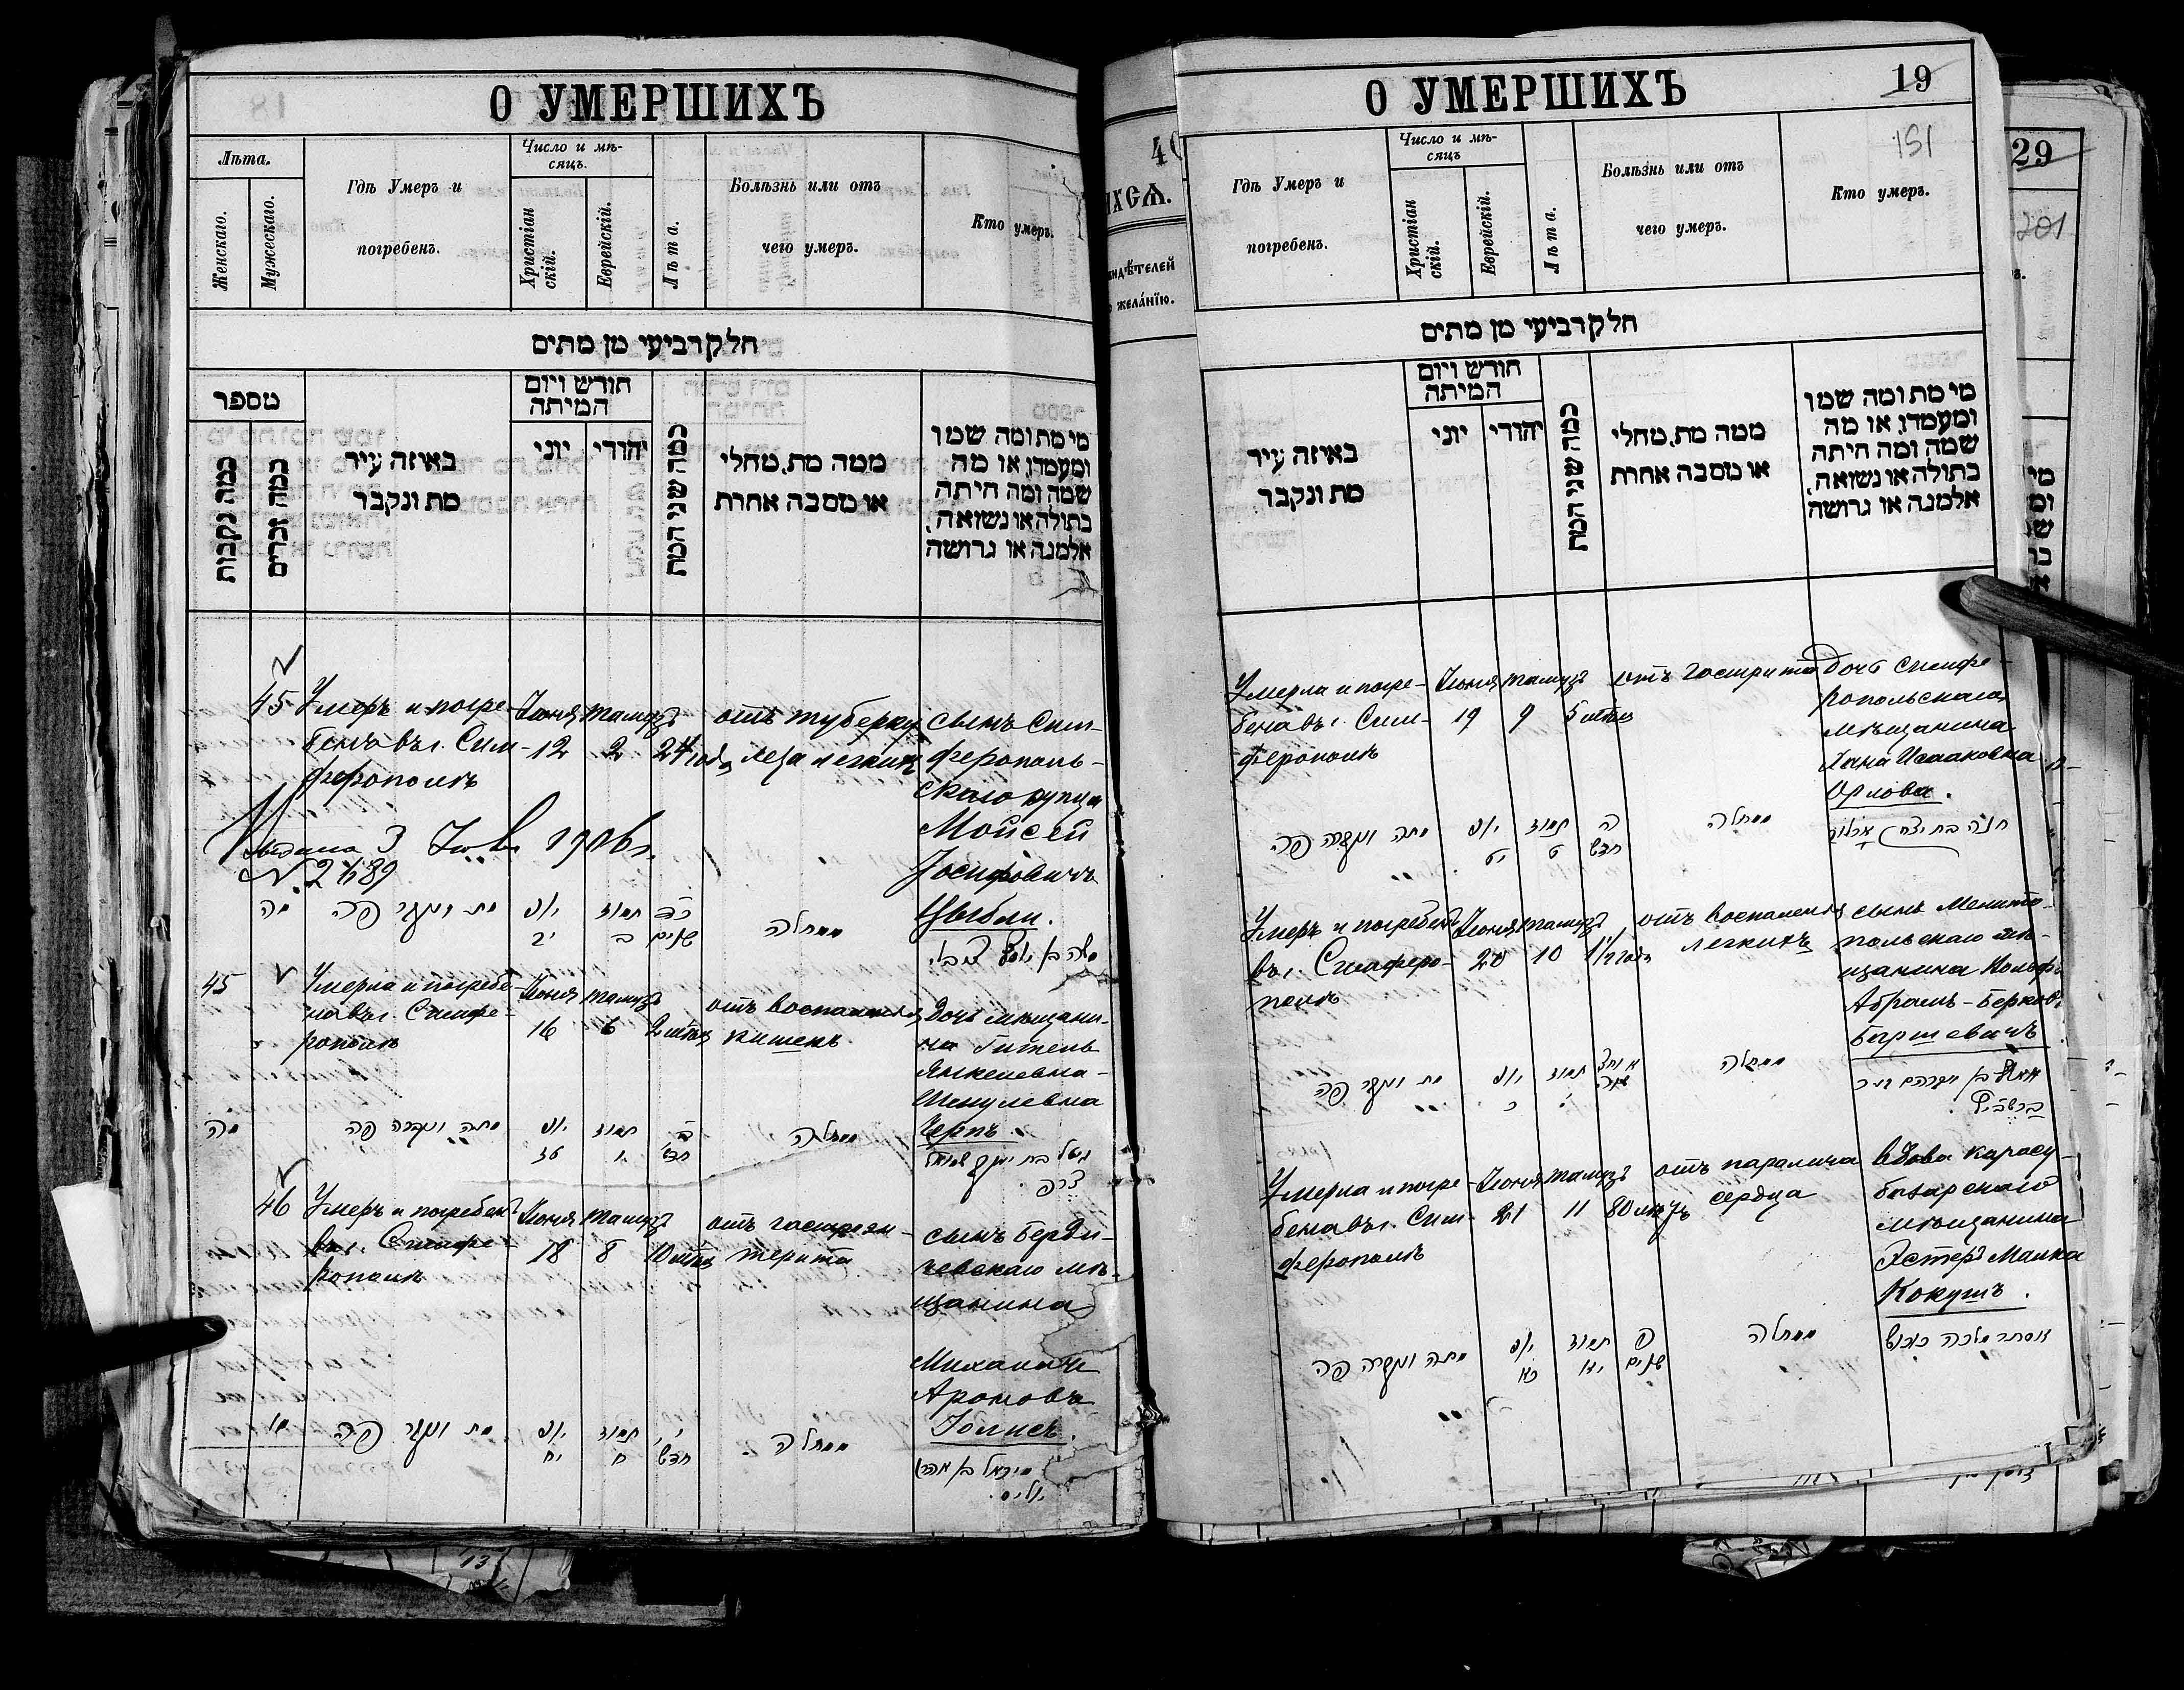 О УМЕРШИХЪ
Лѣта.
Женскаго.
Мужескаго.
Гдѣ Умеръ и
погребенъ.
Число и мѣ-
сяцъ.
Христіан
скій.
Еврейскій.
Лѣта.
Болѣзнь или отъ
чего умеръ.
Кто умеръ.
חלק רביעי מן מתים
מספר
כמה נקבות
כמה זכרים
באיזה עיר
מת ונקבר
חורש ויום
המיתה
יוני
יהודי
כמה שני המת
ממה מת, מחלי
או מסבה אחרת
מי מת ומה שמו
ומעמדו, או מה
שמה ומה היתה
בתולה או נשואה,
אלמנה או גרושה
45
Умеръ и погре-
бенъ въ г. Сим-
ферополѣ
Іюня
12
тамузъ
2
24 года
отъ туберку
леза легкихъ
сынъ Сим-
ферополь-
скаго купца
Мойсей
Іосифовичъ
Цыбли.
3 1906 г.
מה
מת ונקבר פה
יוני
יב
תמוז
ב
כד
שנים
ממחלה
משה בן יוסף
45
Умерла и погребе-
на въ г. Симфе-
рополѣ
Іюня
16
тамузъ
6
2 мѣсяц
отъ воспаления
кишекъ
Дочь мѣщани-
на Гитель
Янкелевна-
Шмулевна
Черпъ.
מה
מתה ונקברה פה
יוני
טז
תמוז
ו
ב
חדש
ממחלה
46
Умеръ и погребенъ
въ г. Симфе-
рополѣ
Іюня
18
тамузъ
8
10 мѣсяц
отъ гастроэн-
терита
сынъ Берди-
чевскаго мѣ-
щанина
Михаилъ
Ароновъ
Іолисъ.
מו
מת ונקבר פה
יוני
יח
תמוז
ח
י
חדש
ממחלה
מיכאל בן אהרן
יוליס.
О УМЕРШИХЪ
19
151
Гдѣ Умеръ и
погребенъ.
Число и мѣ-
сяцъ
Христіан
скій.
Еврейскій.
Лѣта.
Болѣзнь или отъ
чего умеръ.
Кто умеръ.
חלק רביעי מן מתים
באיזה עיר
מת ונקבר
חורש ויום
המיתה
יוני
יהודי
כמה שני המת
ממה מת, מחלי
או מסבה אחרת
מי מת ומה שמו
ומעמדו, או מה
שמה ומה היתה
בתולה או נשואה,
אלמנה או גרושה
Умерла и погре-
бена въ г. Сим-
ферополѣ
Іюня
19
тамузъ
9
5 мѣсяц
отъ гастрита
Дочь симфе-
ропольскаго
мѣщанина
Хана Исааковна
Орлова.
מתה ונקברה פה
יוני
יט
תמוז
ט
ה
חדש
ממחלה
חנה בת יצחק
Умеръ и погребенъ
въ г. Симферо-
полѣ
Іюня
20
тамузъ
10
1½ года
отъ воспаления
легкихъ
сынъ Мелито-
польскаго мѣ-
щанина
Абрамъ-Берков.
Баршевичъ
מת ונקבר פה
יוני
כ
תמוז
י
ממחלה
Умерла и погре-
бена въ г. Сим-
ферополѣ
Іюня
21
тамузъ
11
80 лѣтъ
отъ паралича
сердца
вдова карасу-
базарскаго
мѣщанина
Эстеръ Малка
Кокушъ.
מתה ונקברה פה
יוני
כא
תמוז
יא
פ
שנים
ממחלה
אסתר מלכה קוקוש
29
201